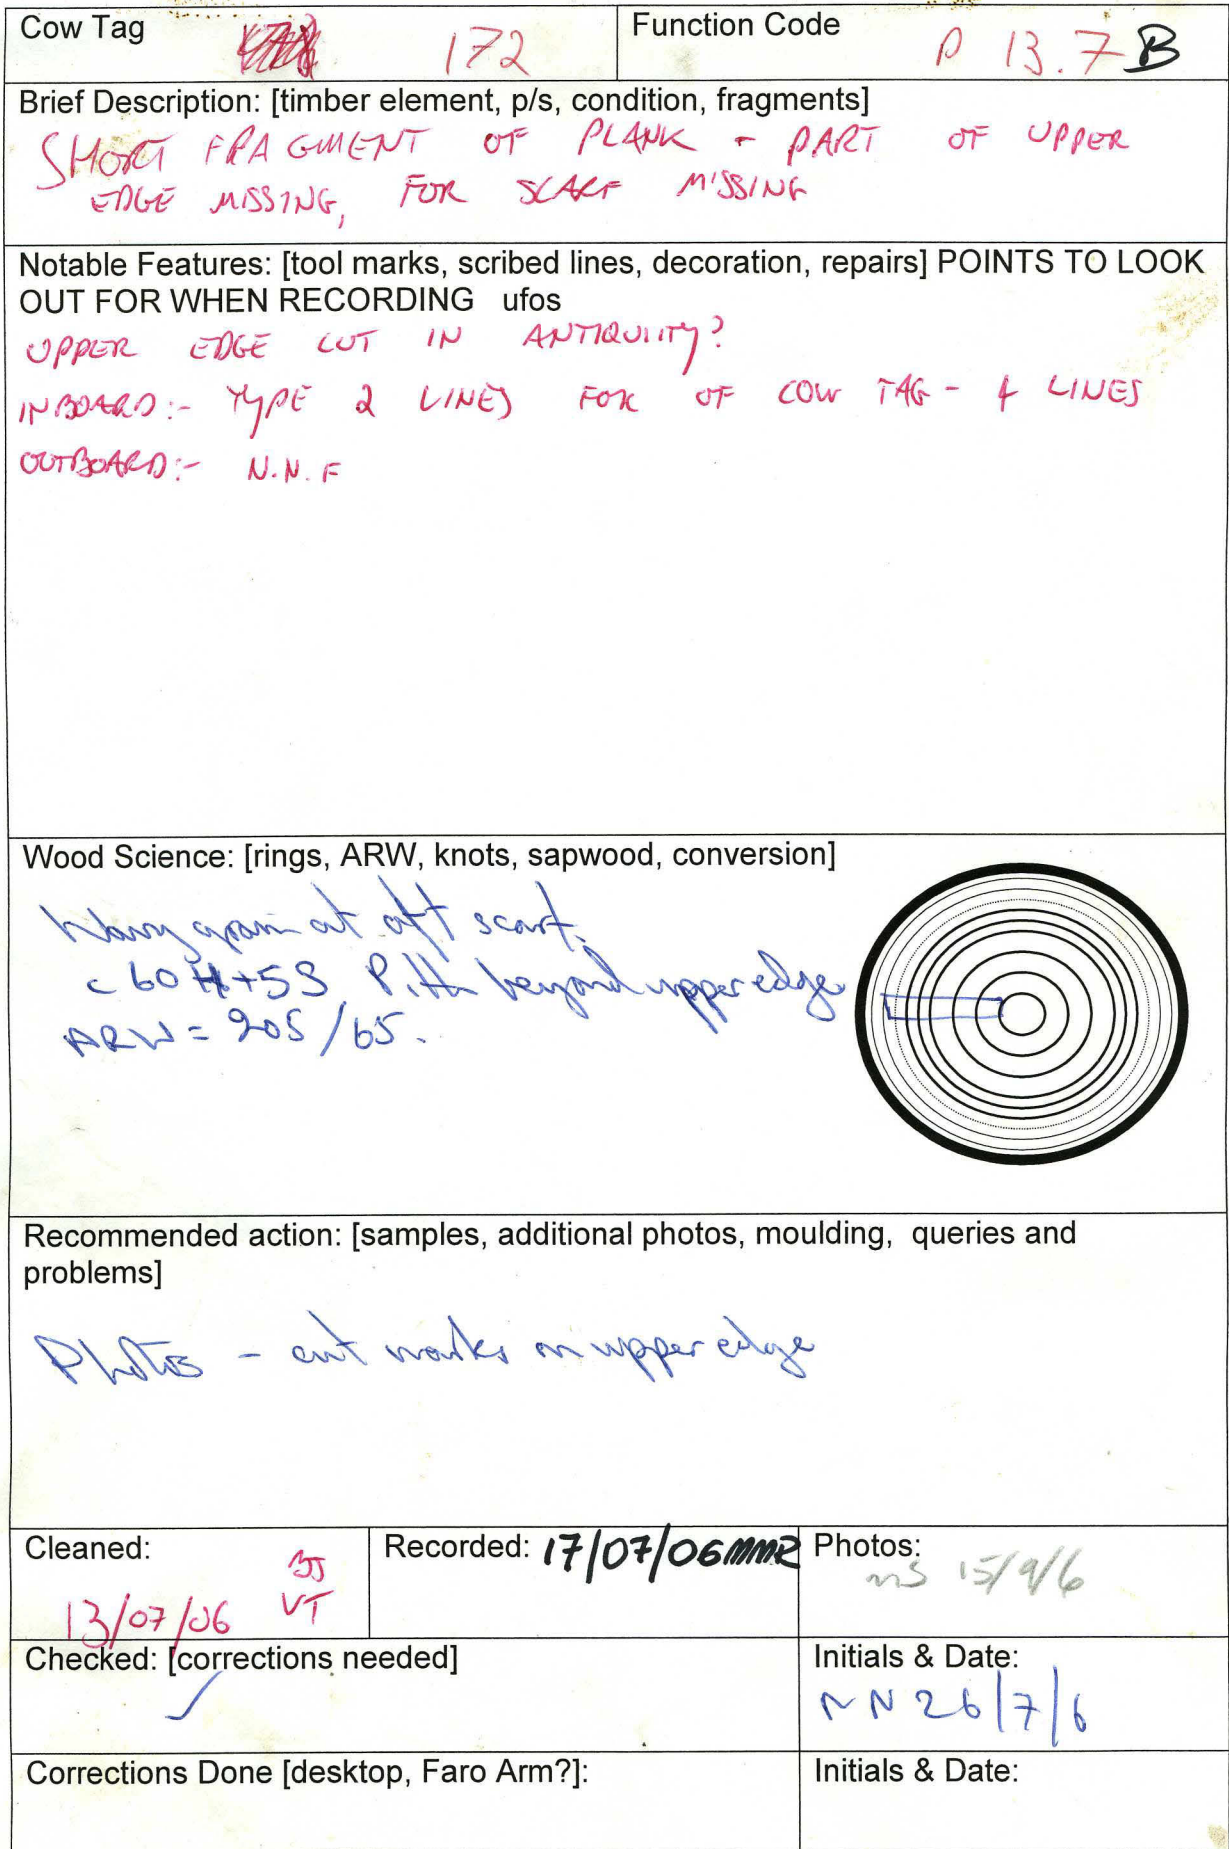 Cow Tag 172
Function Code P 13.7 B
Brief Description: [timber element, p/s, condition, fragments]
SHORT FRAGMENT OF PLANK - PART OF UPPER
EDGE MISSING, FOR SCARF MISSING
Notable Features: [tool marks, scribed lines, decoration, repairs] POINTS TO LOOK
OUT FOR WHEN RECORDING ufos
UPPER EDGE CUT IN ANTIQUITY?
INBOARD:- TYPE 2 LINES FOR OF COW TAG - 4 LINES
OUTBOARD:- N.N.F
Wood Science: [rings, ARW, knots, sapwood, conversion]
Wavy grain at aft scarf.
c 60 H+5S Pith beyond upper edge
ARW = 205/65.
Recommended action: [samples, additional photos, moulding, queries and
problems]
Photos - cut marks on upper edge
Cleaned:
BJ
13/07/06 VT
Recorded: 17/07/06 MMR
Photos:
15/9/6
Checked: [corrections needed]
✓
Initials & Date:
NN 26/7/6
Corrections Done [desktop, Faro Arm?]:
Initials & Date: